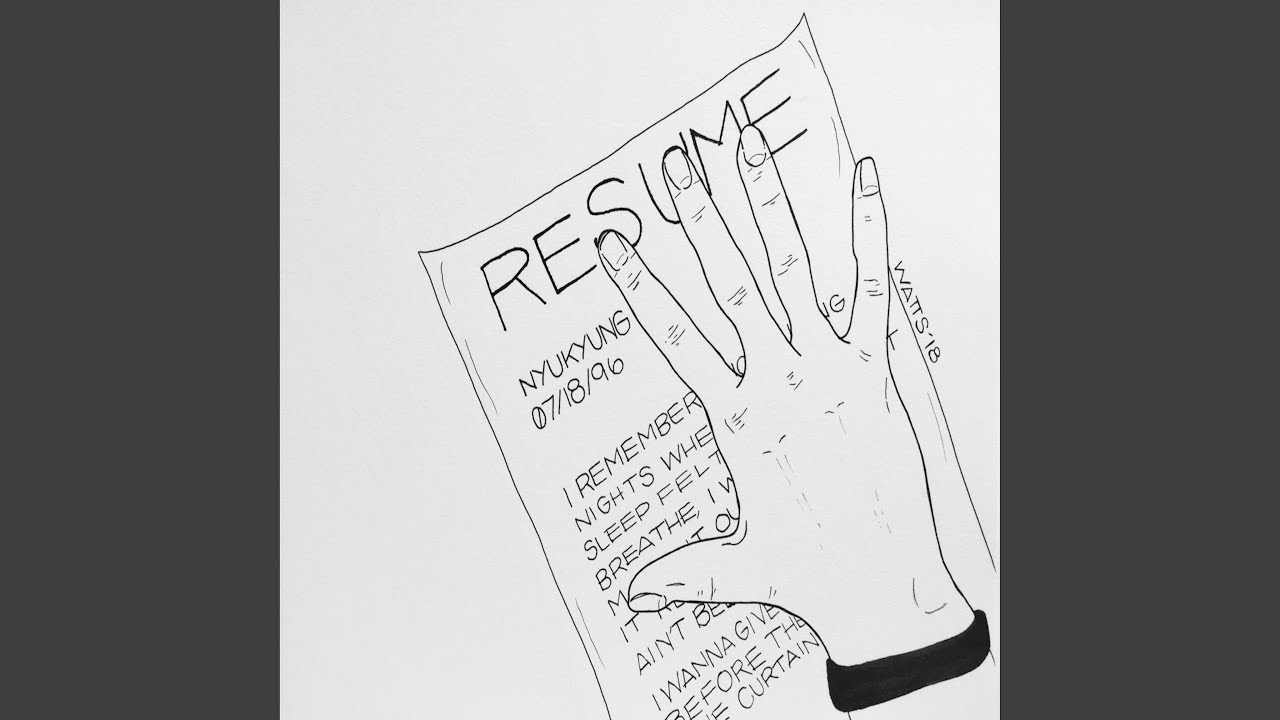 RESUME
NYUKYUNG
07/18/96
I REMEMBER
NIGHTS WHE
SLEEP FELT
BREATHE, I W
M IT OU
IT
AIN'T BE
I WANNA GIVE
BEFORE THE
CURTAIN
NG
T
WATTS '18